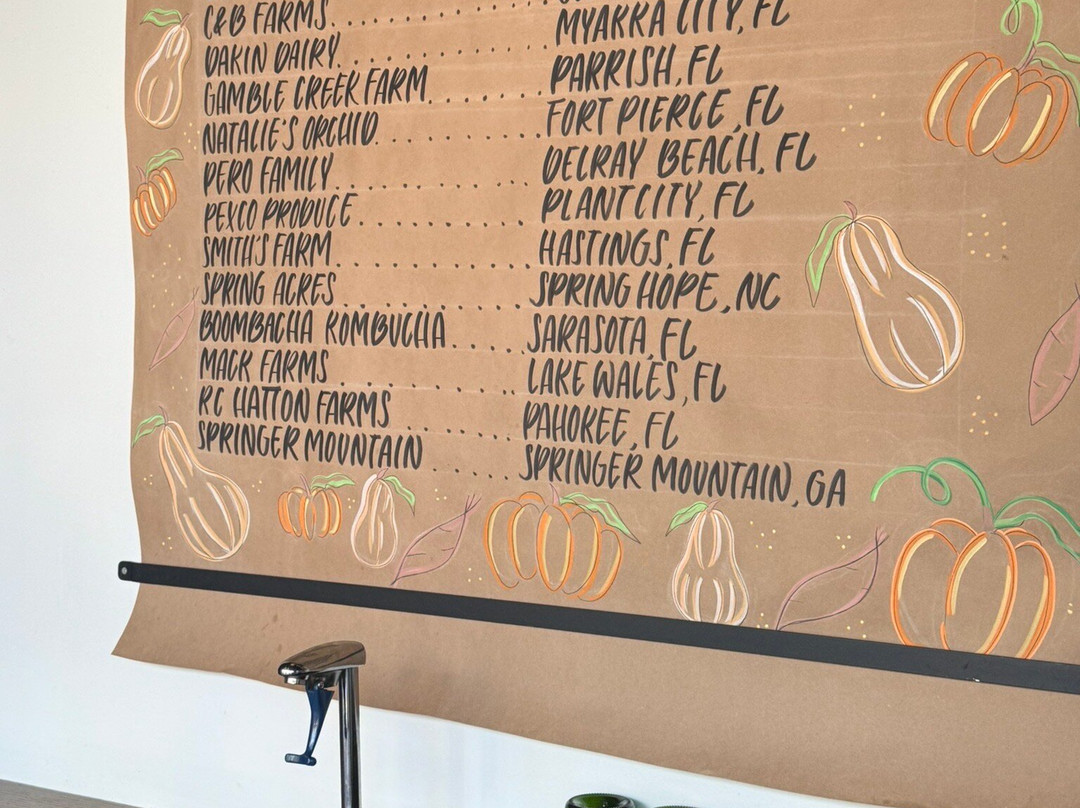 C&B FARMS
DAKIN DAIRY MYAKKA CITY, FL
GAMBLE CREEK FARM PARRISH, FL
NATALIE'S ORCHID FORT PIERCE, FL
PERO FAMILY DELRAY BEACH, FL
PEXCO PRODUCE PLANT CITY, FL
SMITH'S FARM HASTINGS, FL
SPRING ACRES SPRING HOPE, NC
BOOMBACHA KOMBUCHA SARASOTA, FL
MACK FARMS LAKE WALES, FL
RC HATTON FARMS PAHOKEE, FL
SPRINGER MOUNTAIN SPRINGER MOUNTAIN, GA